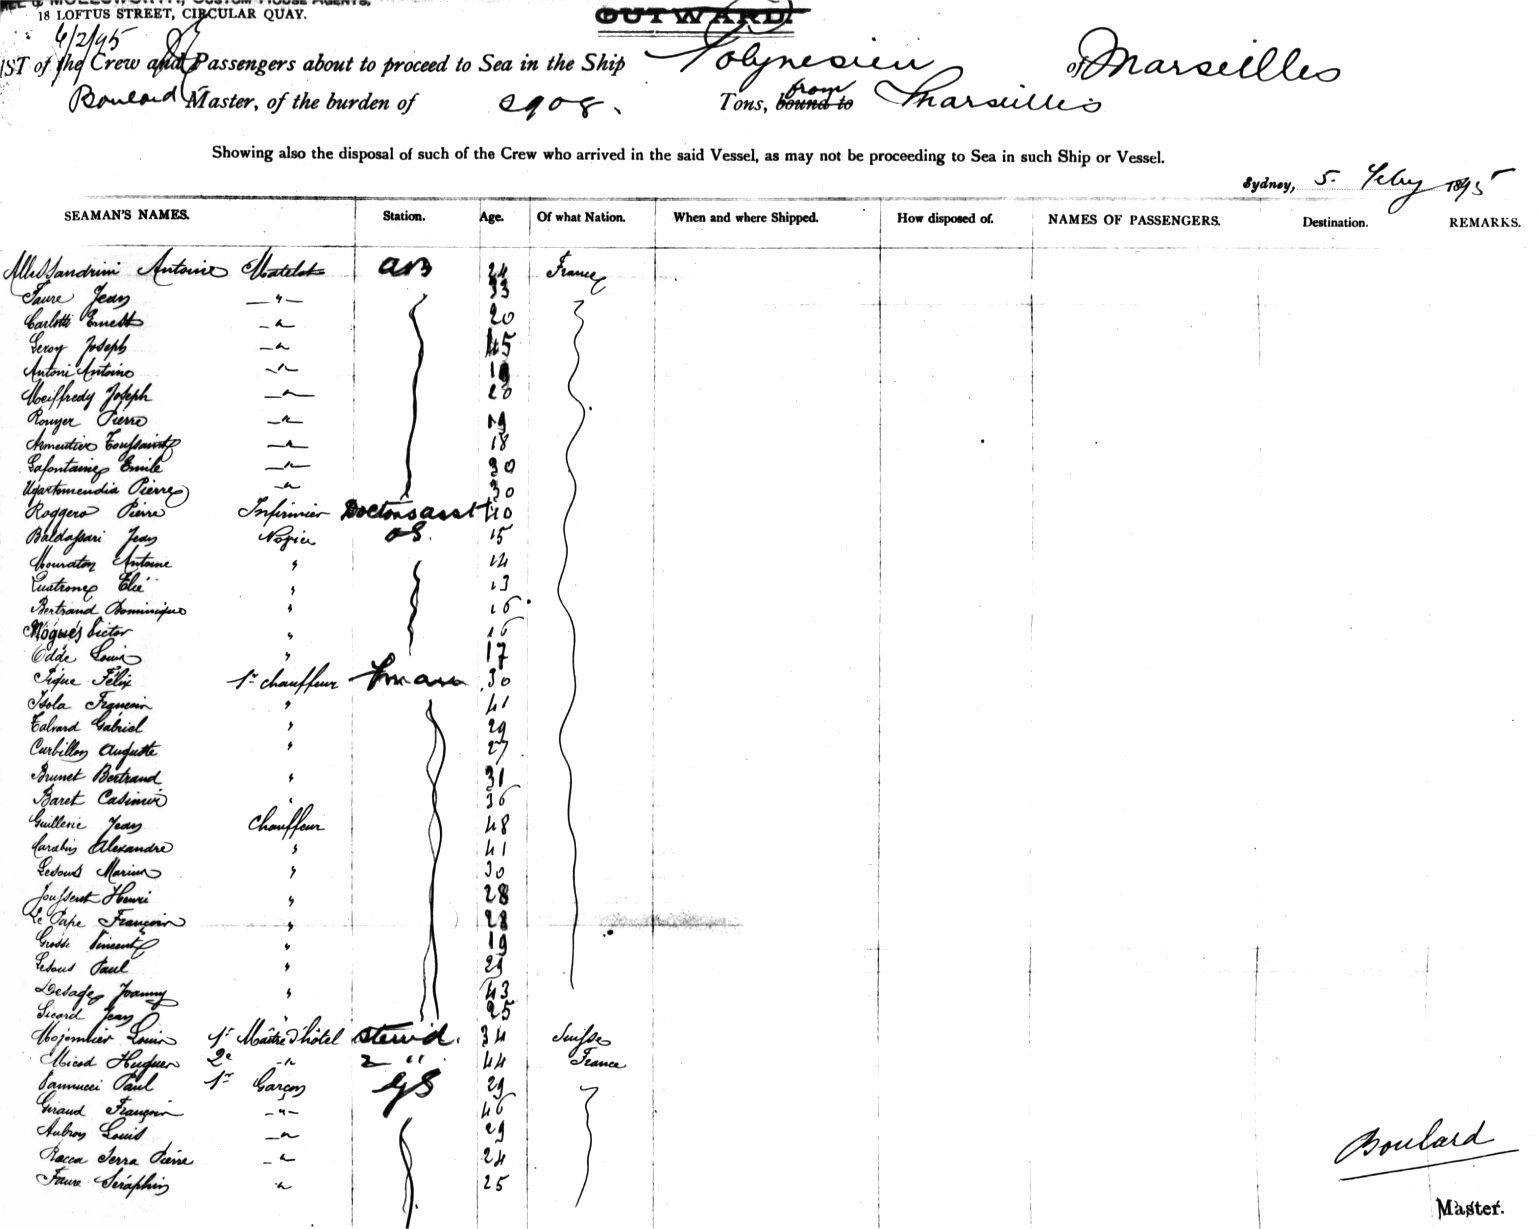 18 LOFTUS STREET, CIRCULAR QUAY.
OUTWARD.
6/2/95
IST of the Crew and Passengers about to proceed to Sea in the Ship Polynesien of Marseilles
Boulard Master, of the burden of 2908. Tons, bound to from Marseilles
Showing also the disposal of such of the Crew who arrived in the said Vessel, as may not be proceeding to Sea in such Ship or Vessel.
Sydney, 5. Feby 1895
SEAMAN'S NAMES. Station. Age. Of what Nation. When and where Shipped. How disposed of. NAMES OF PASSENGERS. Destination. REMARKS.
Allessandrini Antoine Matelot AB 24 France
Faure Jean —"— 33
Carlotti Ernest —" 20
Leroy Joseph —" 45
Antoni Antoine —" 19
Meiffredy Joseph —" 20
Rouyer Pierre —" 19
Armentier Toussaint —" 18
Lafontaine Emile —" 30
Ugartemendia Pierre —" 30
Roggero Pierre Infirmier Doctors asst 40
Baldassari Jean Novice OS. 15
Mouraton Antoine " 14
Elie " 13
Bertrand Dominique " 16
Mogués Victor " 16
Odde Louis " 17
Sique Félix 1er chauffeur fireman 30
Isola François " 41
Talvard Gabriel " 29
Curbillon Auguste " 27
Brunet Bertrand " 31
Baret Casimir " 36
Guillerie Jean Chauffeur 48
Carabin Alexandre " 41
Ledous Marius " 30
Jousseret Henri " 28
Le Pape François " 28
Grosse Vincent " 19
Ledous Paul " 29
Desage Joanny " 43
Sicard Jean " 25
Mojonnier Louis 1r Maître d'hôtel stew'd. 34 Suisse
Micod Hugues 2e —" 2 " 44 France
Vannucci Paul 1er Garçon GS 29
Giraud François —"— 46
Aubron Louis —" 29
Rocca Serra Pierre —" 24
Faure Séraphin " 25
Boulard
Master.